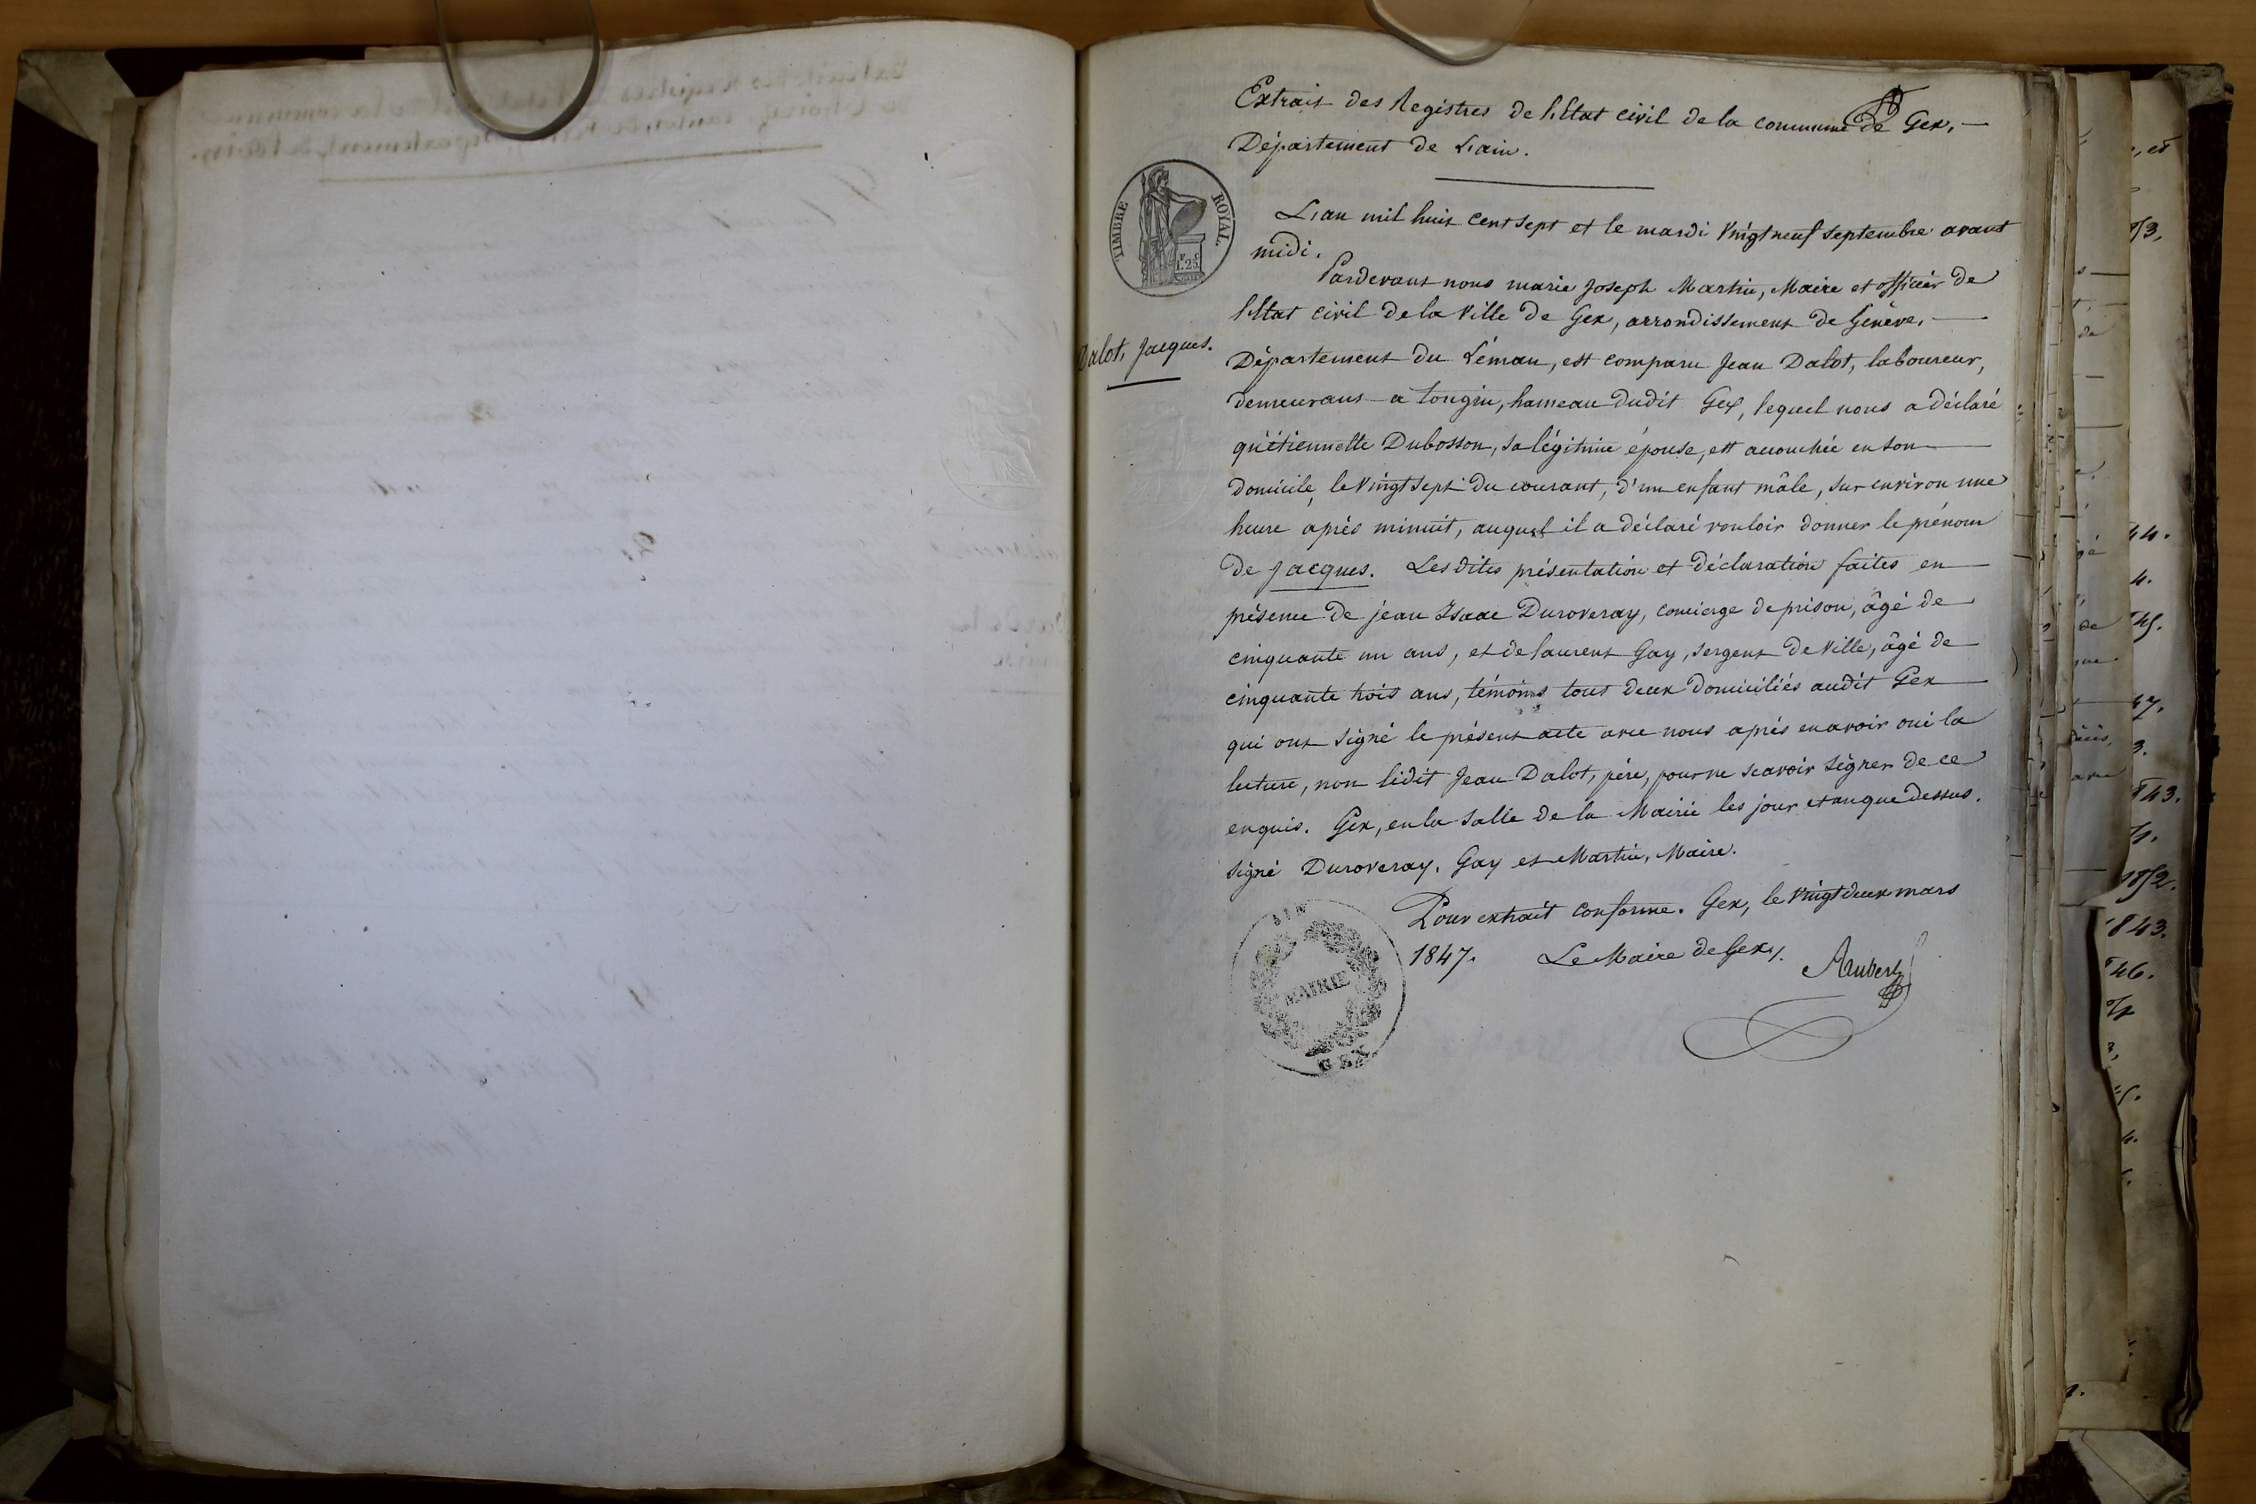 Extrait des Registres de l'Etat civil de la commune de Gex,
Département de L'ain.
TIMBRE ROYAL.
L'an mil huit cent sept et le mardi vingt neuf septembre avant
midi.
Pardevant nous marie Joseph Martin, Maire et officier de
l'Etat civil de la Ville de Gex, arrondissement de Genève,
Dalot, Jacques.
Département du Léman, est comparu Jean Dalot, laboureur,
demeurant a tougin, hameau dudit Gex, lequel nous a déclaré
qu'étiennette Dubosson, sa légitime épouse, est accouchée en son
domicile, le vingt sept du courant, d'un enfant mâle, sur environ une
heure après minuit, auquel il a déclaré vouloir donner le prénom
de Jacques. Les dites présentation et déclaration faites en
présence de jean Isaac Duroveray, concierge de prison, âgé de
cinquante un ans, et de laurent Gay, sergent de Ville, âgé de
cinquante trois ans, témoins tous deux domiciliés audit Gex
qui ont signé le présent acte avec nous après en avoir oui la
lecture, non ledit Jean Dalot, père, pour ne scavoir signer de ce
enquis. Gex, en la Salle de la Mairie les jour et an que dessus.
signé Duroveray. Gay et Martin, Maire.
Pour extrait conforme. Gex, le vingt deux mars
1847. Le Maire de Gex,
MAIRIE
GEX